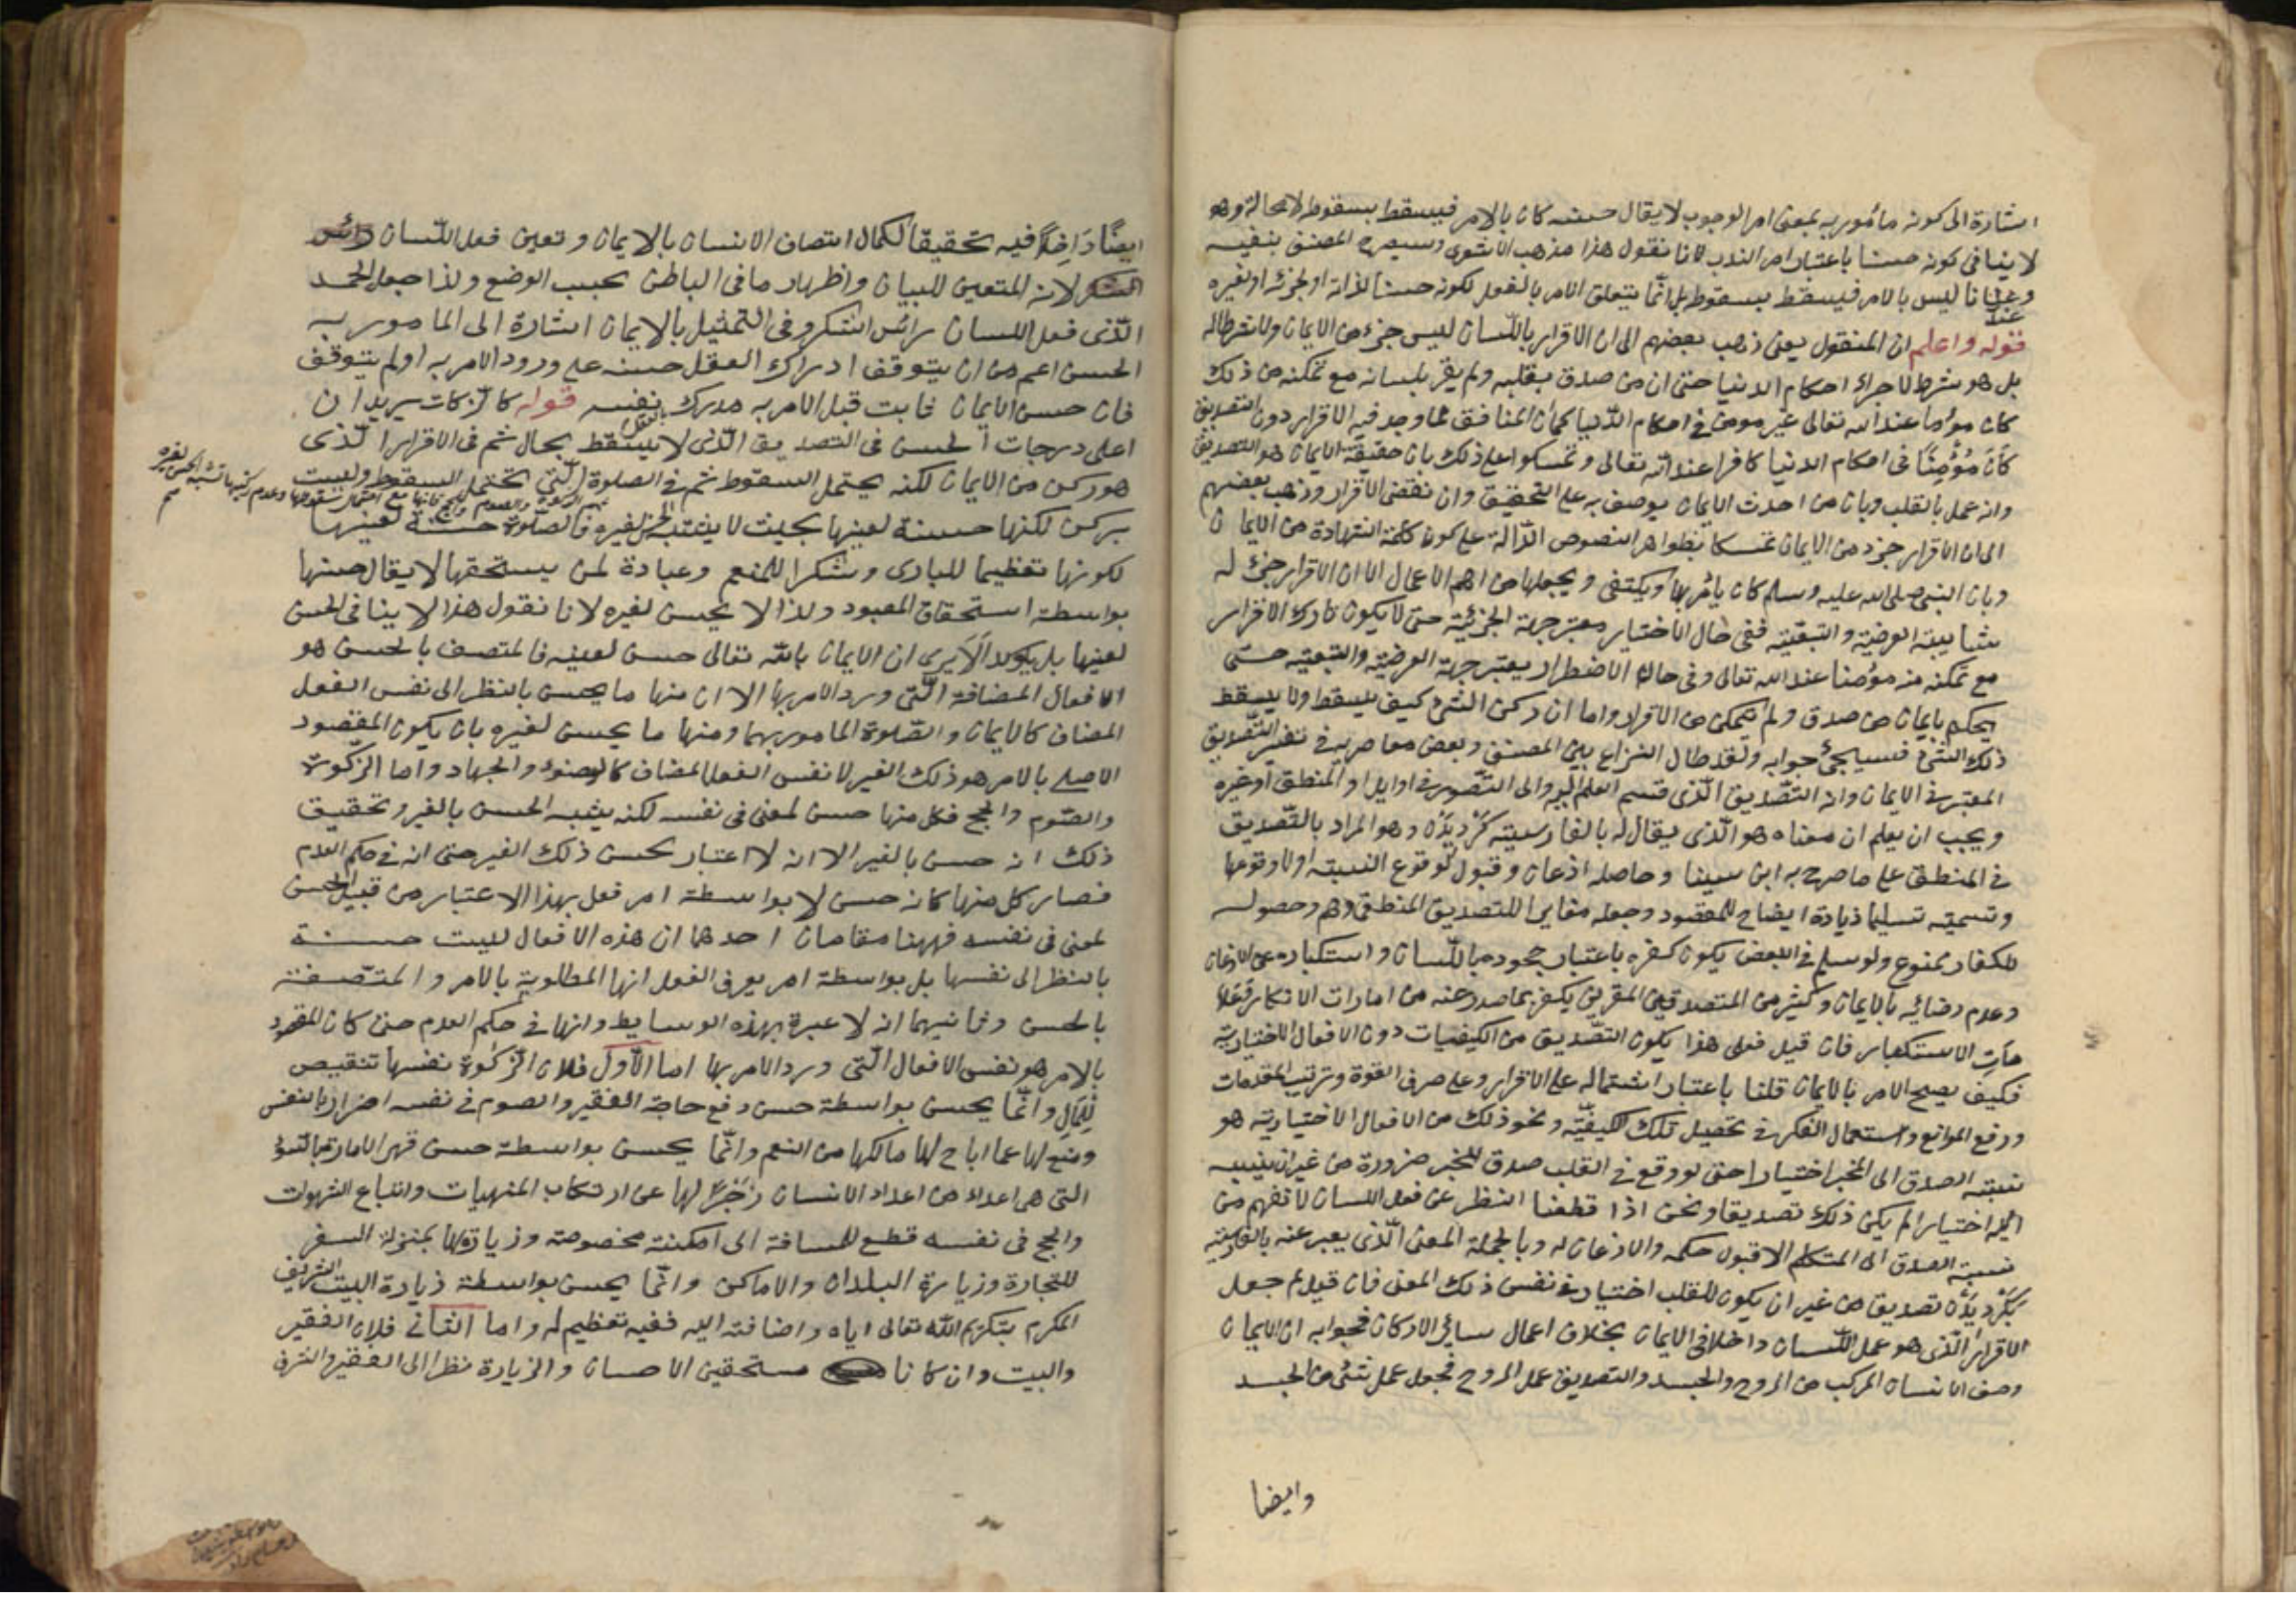 اشارة الى كونه مأمور به بمعنى امر الوجوب لا يقال حسنه كان بالامر فيسقط بسقوطه لا محالة وهو
لا ينافى كونه حسنا باعتبار امر الندب لانا نقول هذا مذهب الاشعرى وسيصرح المصنف بنفيه
وعندنا ليس بالامر فيسقط بسقوطه بل انّما يتعلق الامر بالفعل لكونه حسنا لذاته او لجزئه او لغيره
قوله واعلم ان المنقول يعنى ذهب بعضهم الى ان الاقرار باللّسان ليس جزء من الايمان ولا شرطا له
بل هو شرط لاجراء احكام الدنيا حتى ان من صدق بقلبه ولم يقر بلسانه مع تمكنه من ذلك
كان مؤمنا عند الله تعالى غير مومن فى احكام الدّنيا كما ان المنافق لما وجد فيه الاقرار دون التصديق
كان مؤمِنًا فى احكام الدنيا كافرا عند الله تعالى وتمسكوا على ذلك بان حقيقة الايمان هو التصديق
وانه عمل بالقلب وبان من احدث الايمان يوصف به على التحقيق وان نقضى الاقرار وذهب بعضهم
الى ان الاقرار جزء من الايمان تمسكا بظواهر النصوص الدّالة على كون كلمة الشهادة من الايمان
وبان النبى صلى الله عليه وسلم كان يأمر بها ويكتفى ويجعلها من اهم الاعمال الا ان الاقرار جزء له
شايبة العرضية والتبعيّة ففى حال الاختيار معتبر جهة الجزئيّة حتى لا يكون تارك الاقرار
مع تمكنه منه مؤمنا عند الله تعالى وفى حالة الاضطرار يعتبر جهة العرضيّة والتبعيه حتى
يحكم بايمان من صدق ولم يتمكن من الاقرار واما ان ركن الشئ كيف يسقط ولا يسقط
ذلك الشئ فسيجئ جوابه ولقد طال النزاع بين المصنف وبعض معاصريه فى تفسير التّصديق
المعتبر فى الايمان وانه التّصديق الّذى قسم العلم اليه والى التّصور فى اوايل المنطق او غيره
ويجب ان يعلم ان معناه هو الّذى يقال له بالفارسيته كَرْديدَنْ وهو المراد بالتّصديق
فى المنطق على ما صرح به ابن سينا وحاصله اذعان وقبول لوقوع النسبة او لا وقوعها
وتسميته تسليما زيادة ايضاح للمقصود وجعله مغايرا للتصديق المنطقى وهم وحصوله
للكفار ممنوع ولو سلم فى البعض يكون كفره باعتبار جحوده باللّسان واستكباره عن الاذعان
وعدم رضائه بالايمان وكثير من المتصدقين المقرين يكفر بما صدر عنه من امارات الانكار وعَلا
مَاتِ الاستكبار فان قيل فعلى هذا يكون التّصديق من الكيفيات دون الافعال الاختيارية
فكيف يصح الامر بالايمان قلنا باعتبار اشتماله على الاقرار وعلى صرف القوة وترتيب المقدمات
ورفع الموانع واستعمال الفكر فى تحصيل تلك الكيفيّة ونحو ذلك من الافعال الاختيارية هو
نسبته الصدق الى المخبر اختيارا حتى لو وقع فى القلب صدق للخبر ضرورة من غير ان ينسبه
اليه اختيارا لم يكن ذلك تصديقا ونحن اذا قطعنا النظر عن فعل اللسان لا نفهم من
نسبته الصدق الى المتكلم الا قبول حكمه والاذعان له وبالجملة المعنى الّذى يعبر عنه بالفارسيته
بكَرْديدَنْ تصديق من غير ان يكون للقلب اختيار فى نفس ذلك المعنى فان قيل لم جعل
الاقرار الّذى هو عمل اللّسان داخلا فى الايمان بخلاف اعمال سائر الاركان فجوابه ان الايمان
وصف الانسان المركب من الروح والجسد والتصديق عمل الروح فجعل عمل شئ من الجسد
وايضا
ايضًا دَاخِلاً فيه تحقيقًا لكمال اتصاف الانسان بالايمان وتعين فعل اللّسان
لانه المتعين للبيان واظهار ما فى الباطن بحسب الوضع ولذا جعل الحمد
الّذى فعل اللسان رائس الشكر وفى التّمثيل بالايمان اشارة الى المامور به
الحسن اعم من ان يتوقف ادراك العقل حسنه على ورود الامر به او لم يتوقف
فان حسن الايمان ثابت قبل الامر به مدرك بالعقل نفسه قوله كالزكات يريد ان
اعلى درجات الحسن فى التصديق الّذى لا يسقط بحال ثم فى الاقرار الّذى
هو ركن من الايمان لكنه يحتمل السقوط ثم فى الصلوة الّتى تحتمل السقوط وليست
بركن لكنها حسنة لعينها بحيث لا يشبه الحسن لغيره فالصّلوة حسنة لعينها
ثم الزكوة والصوم والحج فانها مع احتمال سقوطها وعدم ركنيها تشبه الحسن لغيره
لكونها تعظيما للبارى وشكرا للمنعم وعبادة لمن يستحقها لا يقال حسنها
بواسطة استحقاق المعبود ولذا لا يحسن لغيره لانا نقول هذا لا ينافى الحسن
لعينها بل يؤكد الَا يَرى ان الايمان بالله تعالى حسن لعينه فالمتصف بالحسن هو
الافعال المضافة الّتى ورد الامر بها الا ان منها ما يحسن بالنظر الى نفس الفعل
المضاف كالايمان والصّلوة المامور بهما ومنها ما يحسن لغيره بان يكون المقصود
الاصلى بالامر هو ذلك الغير لا نفس الفعل المضاف كالوضوء والجهاد واما الزّكوة
والصّوم والحج فكل منها حسن لمعنى فى نفسه لكنه يشبه الحسن بالغير وتحقيق
ذلك انه حسن بالغير الا انه لا اعتبار بحسن ذلك الغير حتى انه فى حكم العدم
فصار كل منها كانه حسن لا بواسطة امر فعل بهذا الاعتبار من قبيل الحسن
لمعنى فى نفسه فههنا مقامان احدهما ان هذه الافعال ليست حسنة
بالنظر الى نفسها بل بواسطة امر يعرف الفعل انها المطلوبة بالامر والمتّصفة
بالحسن وثانيهما انه لا عبرة بهذه الوسايط وانها فى حكم العدم حتى كان المقصود
بالامر هو نفس الافعال الّتى ورد الامر بها اما الاّول فلان الزّكوة نفسها تنقيص
للمال وانّما يحسن بواسطة حسن دفع حاجة الفقير والصوم فى نفسه اضرار بالنفس
ومنع لها عما اباح لها مالكها من النعم وانّما يحسن بواسطة حسن قهر الامارة بالسّوء
التى هى اعداء من اعداد الانسان زَجْرًا لها عن ارتكاب المنهيات واتباع الشهوات
والحج فى نفسه قطع للمسافة الى امكنة مخصوصة وزيارتها بمنزلة السفر
للتجارة وزيارة البلدان والاماكن وانّما يحسن بواسطة زيارة البيت الشريف
المكرم بتكريم الله تعالى اياه واضافته اليه ففيه تعظيم له واما الثانى فلان الفقير
والبيت وان كانا مستحقين الاحسان والزيارة نظرا الى الفقير والشرف